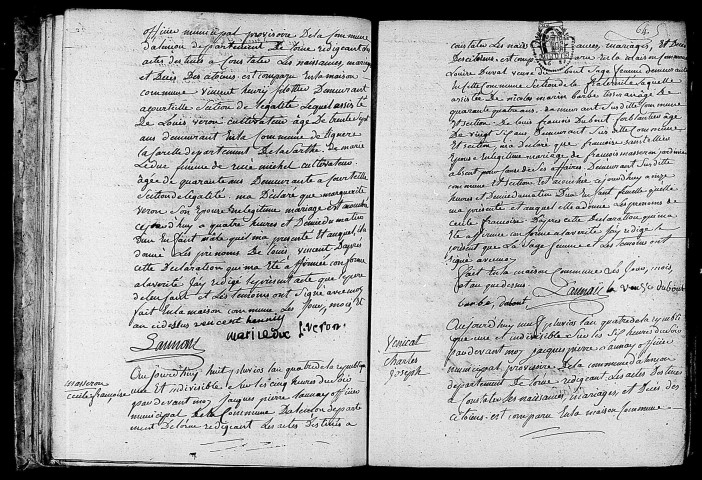 officier municipal provisoire De la Commune
d'alençon departement De l'orne redigeant les
actes destinés a Constater Les naissances, mariages
et Decès Des citoyens est comparu En la maison
commune vincent henry Demeurant
Section de l'egalité Lequel assisté
De Louis veron cultivateur âgé De trente Sept
ans demeurant En la Commune de ligniere
la carelle departement De la Sarthe et De marie
Leduc femme de rené michel cultivateur
agée de quarante ans Demeurante a Courteille
Section de l'egalité. ma Déclaré que marguerite
veron Son Epouse En legitime mariage est accouchée
cejourd'huy a quatre heures et Demie du matin
D'un En fant mâle qu'il ma presenté Et auquel il a
donné Les prenoms De Louis vincent D'après
cette Declaration que ma Eté affirmée conforme
a la verité J'ay redigé le present acte que le pere
de l'enfant et Les temoins ont Signé avec moy
fait En la maison commune Les Jour, mois, et
an cidessus vincent henry
mari leduc l. veron
Launay
masseron
cecile françoise
Aujourd'huy huit pluviose l'an quatre de la republique
une Et indivisible, Sur les cinq heures du soir
pardevant moy Jacques pierre Launay officier
municipal De la Commune D'alencon departe
ment De l'orne redigeant Les actes Destinés a
64.
constater Les naissances, mariages, Et Decès
Des citoyens est comparu En la maison Commune
Louise Duval veuve Dubout Sage femme demeurante
en cette Commune Section de la fraternité Laquelle
assistée De nicolas marin barbe tisserand agé de
quarante quatre ans, Demeurant Sur ditte Commune
et Section et De Louis françois Dubout ferblantier agé
De vingt Six ans, Demeurant Sur ditte Commune
et Section, ma declaré que françoise
Epouse En legitime mariage de françois masseron jardinier
absent pour cause de Ses affaires Demeurant Sur ditte
commune et Section est accouchée cejourd'huy a onze
heures et Demie du matin D'un En fant femelle qu'elle
ma presenté et auquel Elle a donné Les prenoms de
cecile françoise D'après cette Declaration que ma
Eté affirmée conforme a la verité J'ay redigé le
present que La Sage femme et Les temoins ont
signé avec moy
fait En la maison Commune Les Jour, mois
et an que dessus
Launay la veuve dubout
barbe, dubout
Venicat
Charles
Joseph
Aujourd'huy neuf pluviose l'an quatre de la republique
une et indivisible Sur les Six heures du Soir
pardevant moy Jacques pierre Launay officier
municipal provisoire De la commune d'alençon
departement De l'orne redigeant Les actes Destinés
a Constater Les naissances, mariages, et Decès des
citoiens. est comparu En la maison Commune